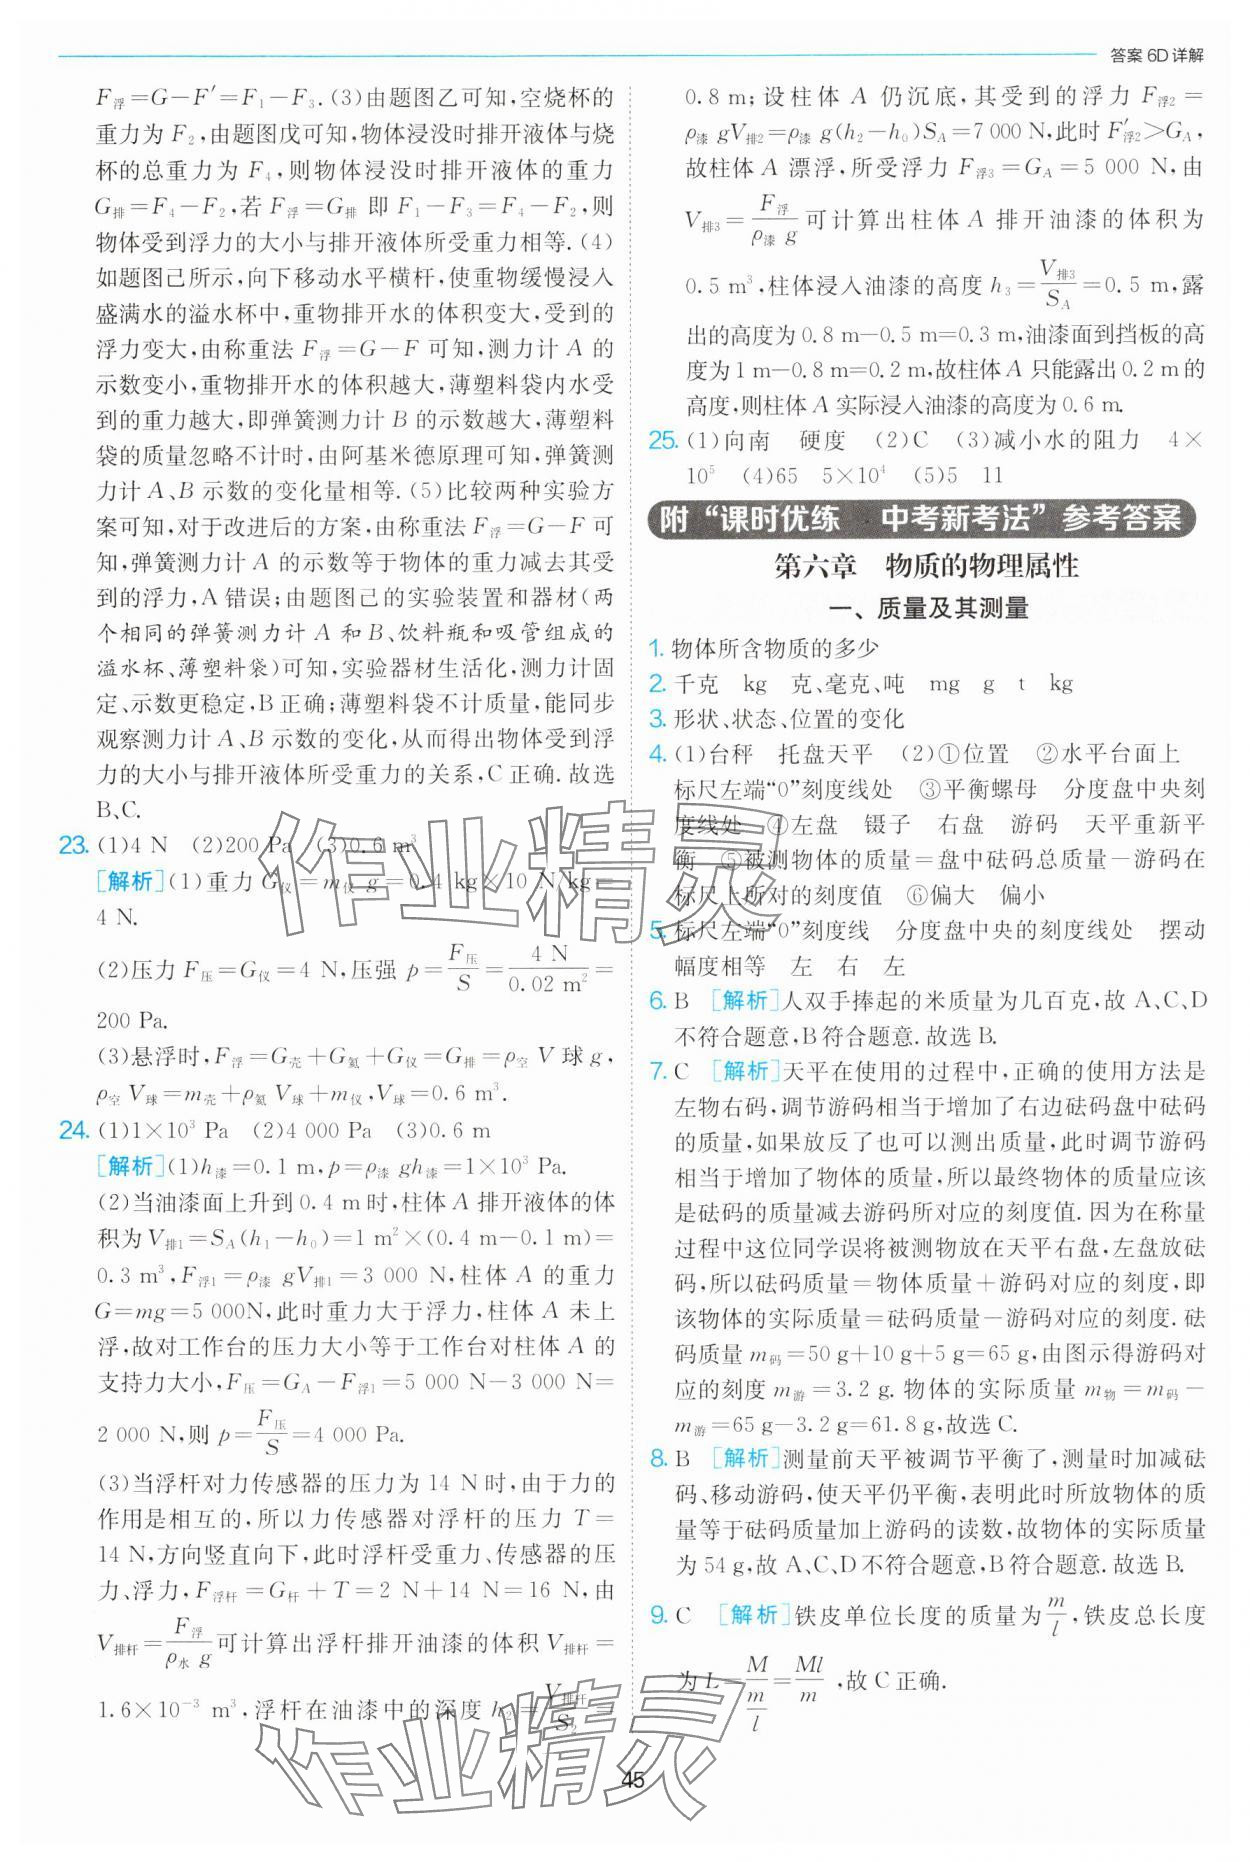 答案 6D 详解
F浮=G−F′=F₁−F₃.(3)由题图乙可知,空烧杯的
重力为 F₂,由题图戊可知,物体浸没时排开液体与烧
杯的总重力为 F₄,则物体浸没时排开液体的重力
G排=F₄−F₂,若 F浮=G排 即 F₁−F₃=F₄−F₂,则
物体受到浮力的大小与排开液体所受重力相等.(4)
如题图己所示,向下移动水平横杆,使重物缓慢浸入
盛满水的溢水杯中,重物排开水的体积变大,受到的
浮力变大,由称重法 F浮=G−F 可知,测力计 A 的
示数变小,重物排开水的体积越大,薄塑料袋内水受
到的重力越大,即弹簧测力计 B 的示数越大,薄塑料
袋的质量忽略不计时,由阿基米德原理可知,弹簧测
力计 A、B 示数的变化量相等.(5)比较两种实验方
案可知,对于改进后的方案,由称重法 F浮=G−F 可
知,弹簧测力计 A 的示数等于物体的重力减去受到
的浮力,A 错误;由题图己的实验装置和器材(两
个相同的弹簧测力计 A 和 B、饮料瓶和吸管组成的
溢水杯、薄塑料袋)可知,实验器材生活化,测力计固
定、示数更稳定,B 正确;薄塑料袋不计质量,能同步
观察测力计 A、B 示数的变化,从而得出物体受到浮
力的大小与排开液体所受重力的关系,C 正确.故选
B、C.
23. (1)4 N (2)200 Pa (3)0.6 m³
[解析](1)重力 G仪=m仪 g=0.4 kg×10 N/kg=
4 N.
(2)压力 F压=G仪=4 N,压强 p=F压/S=4 N/0.02 m²=
200 Pa.
(3)悬浮时,F浮=G壳+G氦+G仪=G排=ρ空 V球g,
ρ空 V球=m壳+ρ氦 V球+m仪,V球=0.6 m³.
24. (1)1×10³ Pa (2)4 000 Pa (3)0.6 m
[解析](1)h漆=0.1 m,p=ρ漆 gh漆=1×10³ Pa.
(2)当油漆面上升到 0.4 m 时,柱体 A 排开液体的体
积为 V排1=S_A(h₁−h₀)=1 m²×(0.4 m−0.1 m)=
0.3 m³,F浮1=ρ漆 gV排1=3 000 N,柱体 A 的重力
G=mg=5 000N,此时重力大于浮力,柱体 A 未上
浮,故对工作台的压力大小等于工作台对柱体 A 的
支持力大小,F压=G_A−F浮1=5 000 N−3 000 N=
2 000 N,则 p=F压/S=4 000 Pa.
(3)当浮杆对力传感器的压力为 14 N 时,由于力的
作用是相互的,所以力传感器对浮杆的压力 T=
14 N,方向竖直向下,此时浮杆受重力、传感器的压
力、浮力,F浮杆=G杆+T=2 N+14 N=16 N,由
V排杆=F浮/ρ水 g可计算出浮杆排开油漆的体积 V排杆=
1.6×10⁻³ m³,浮杆在油漆中的深度 h₂=V排杆/S₂=
0.8 m;设柱体 A 仍沉底,其受到的浮力 F浮2=
ρ漆 gV排2=ρ漆 g(h₂−h₀)S_A=7 000 N,此时 F′浮2>G_A,
故柱体 A 漂浮,所受浮力 F浮3=G_A=5 000 N,由
V排3=F浮/ρ漆 g可计算出柱体 A 排开油漆的体积为
0.5 m³,柱体浸入油漆的高度 h₃=V排3/S_A=0.5 m,露
出的高度为 0.8 m−0.5 m=0.3 m,油漆面到挡板的高
度为 1 m−0.8 m=0.2 m,故柱体 A 只能露出 0.2 m 的
高度,则柱体 A 实际浸入油漆的高度为 0.6 m.
25. (1)向南 硬度 (2)C (3)减小水的阻力 4×
10⁵ (4)65 5×10⁴ (5)5 11
附“课时优练 中考新考法”参考答案
第六章 物质的物理属性
一、质量及其测量
1. 物体所含物质的多少
2. 千克 kg 克、毫克、吨 mg g t kg
3. 形状、状态、位置的变化
4. (1)台秤 托盘天平 (2)①位置 ②水平台面上
标尺左端“0”刻度线处 ③平衡螺母 分度盘中央刻
度线处 ④左盘 镊子 右盘 游码 天平重新平
衡 ⑤被测物体的质量=盘中砝码总质量−游码在
标尺上所对的刻度值 ⑥偏大 偏小
5. 标尺左端“0”刻度线 分度盘中央的刻度线处 摆动
幅度相等 左 右 左
6. B [解析]人双手捧起的米质量为几百克,故 A、C、D
不符合题意,B符合题意.故选 B.
7. C [解析]天平在使用的过程中,正确的使用方法是
左物右码,调节游码相当于增加了右边砝码盘中砝码
的质量,如果放反了也可以测出质量,此时调节游码
相当于增加了物体的质量,所以最终物体的质量应该
是砝码的质量减去游码所对应的刻度值. 因为在称量
过程中这位同学误将被测物放在天平右盘,左盘放砝
码,所以砝码质量=物体质量+游码对应的刻度,即
该物体的实际质量=砝码质量−游码对应的刻度. 砝
码质量 m码=50 g+10 g+5 g=65 g,由图示得游码对
应的刻度 m游=3.2 g. 物体的实际质量 m物=m码−
m游=65 g−3.2 g=61.8 g,故选 C.
8. B [解析]测量前天平被调节平衡了,测量时加减砝
码、移动游码,使天平仍平衡,表明此时所放物体的质
量等于砝码质量加上游码的读数,故物体的实际质量
为 54 g,故 A、C、D不符合题意,B符合题意.故选 B.
9. C [解析]铁皮单位长度的质量为m/l,铁皮总长度
为 L=M/(m/l)=Ml/m,故 C 正确.
45
作业精灵
作业精灵